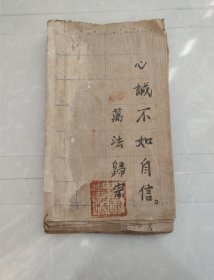 心誠不如自信。
萬法歸宗